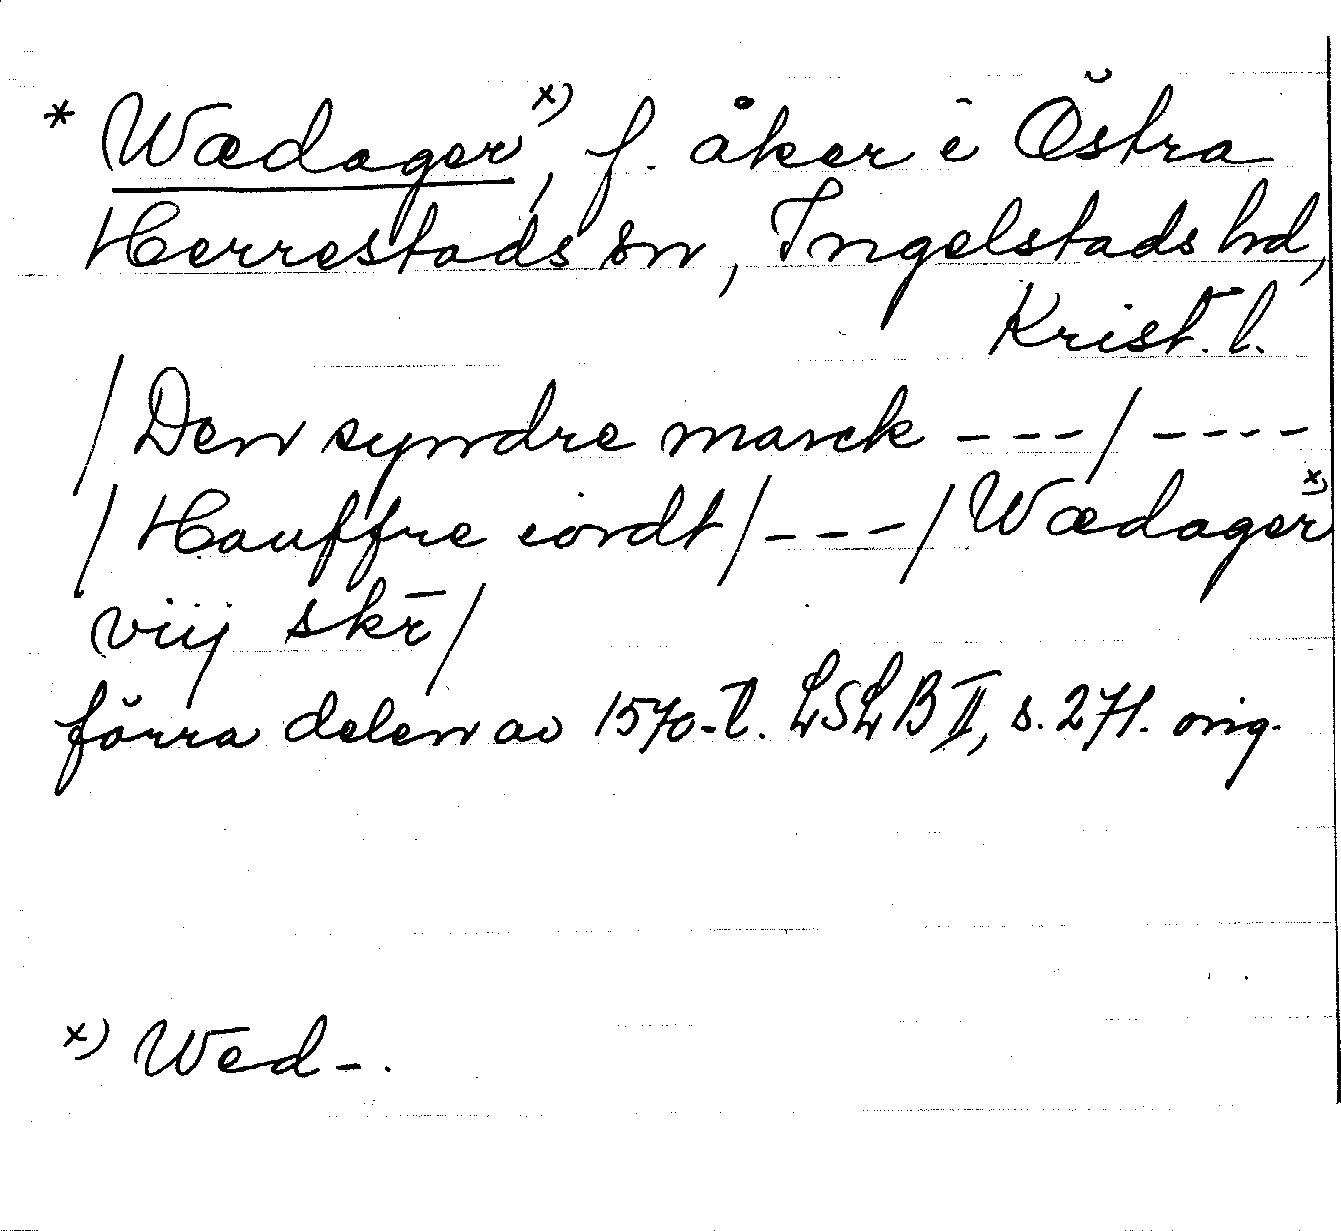 * Wædager x), f. åker i Östra
Herrestads sn, Ingelstads hd,
Krist. l.
/ Den syndre marck ---/ ----
/ Hauffre iordt / --- / Wædager x)
viij skr̄ /
förra delen av 1570-t. LSLB II, s. 271. orig.
x) Wed-.